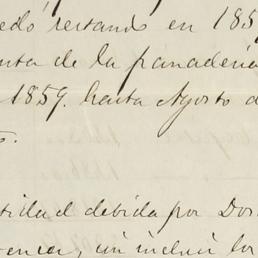 edó restando en 185
nta de la panadería
1859. hasta Agosto d
tida el debida por Do
sin incluir lo